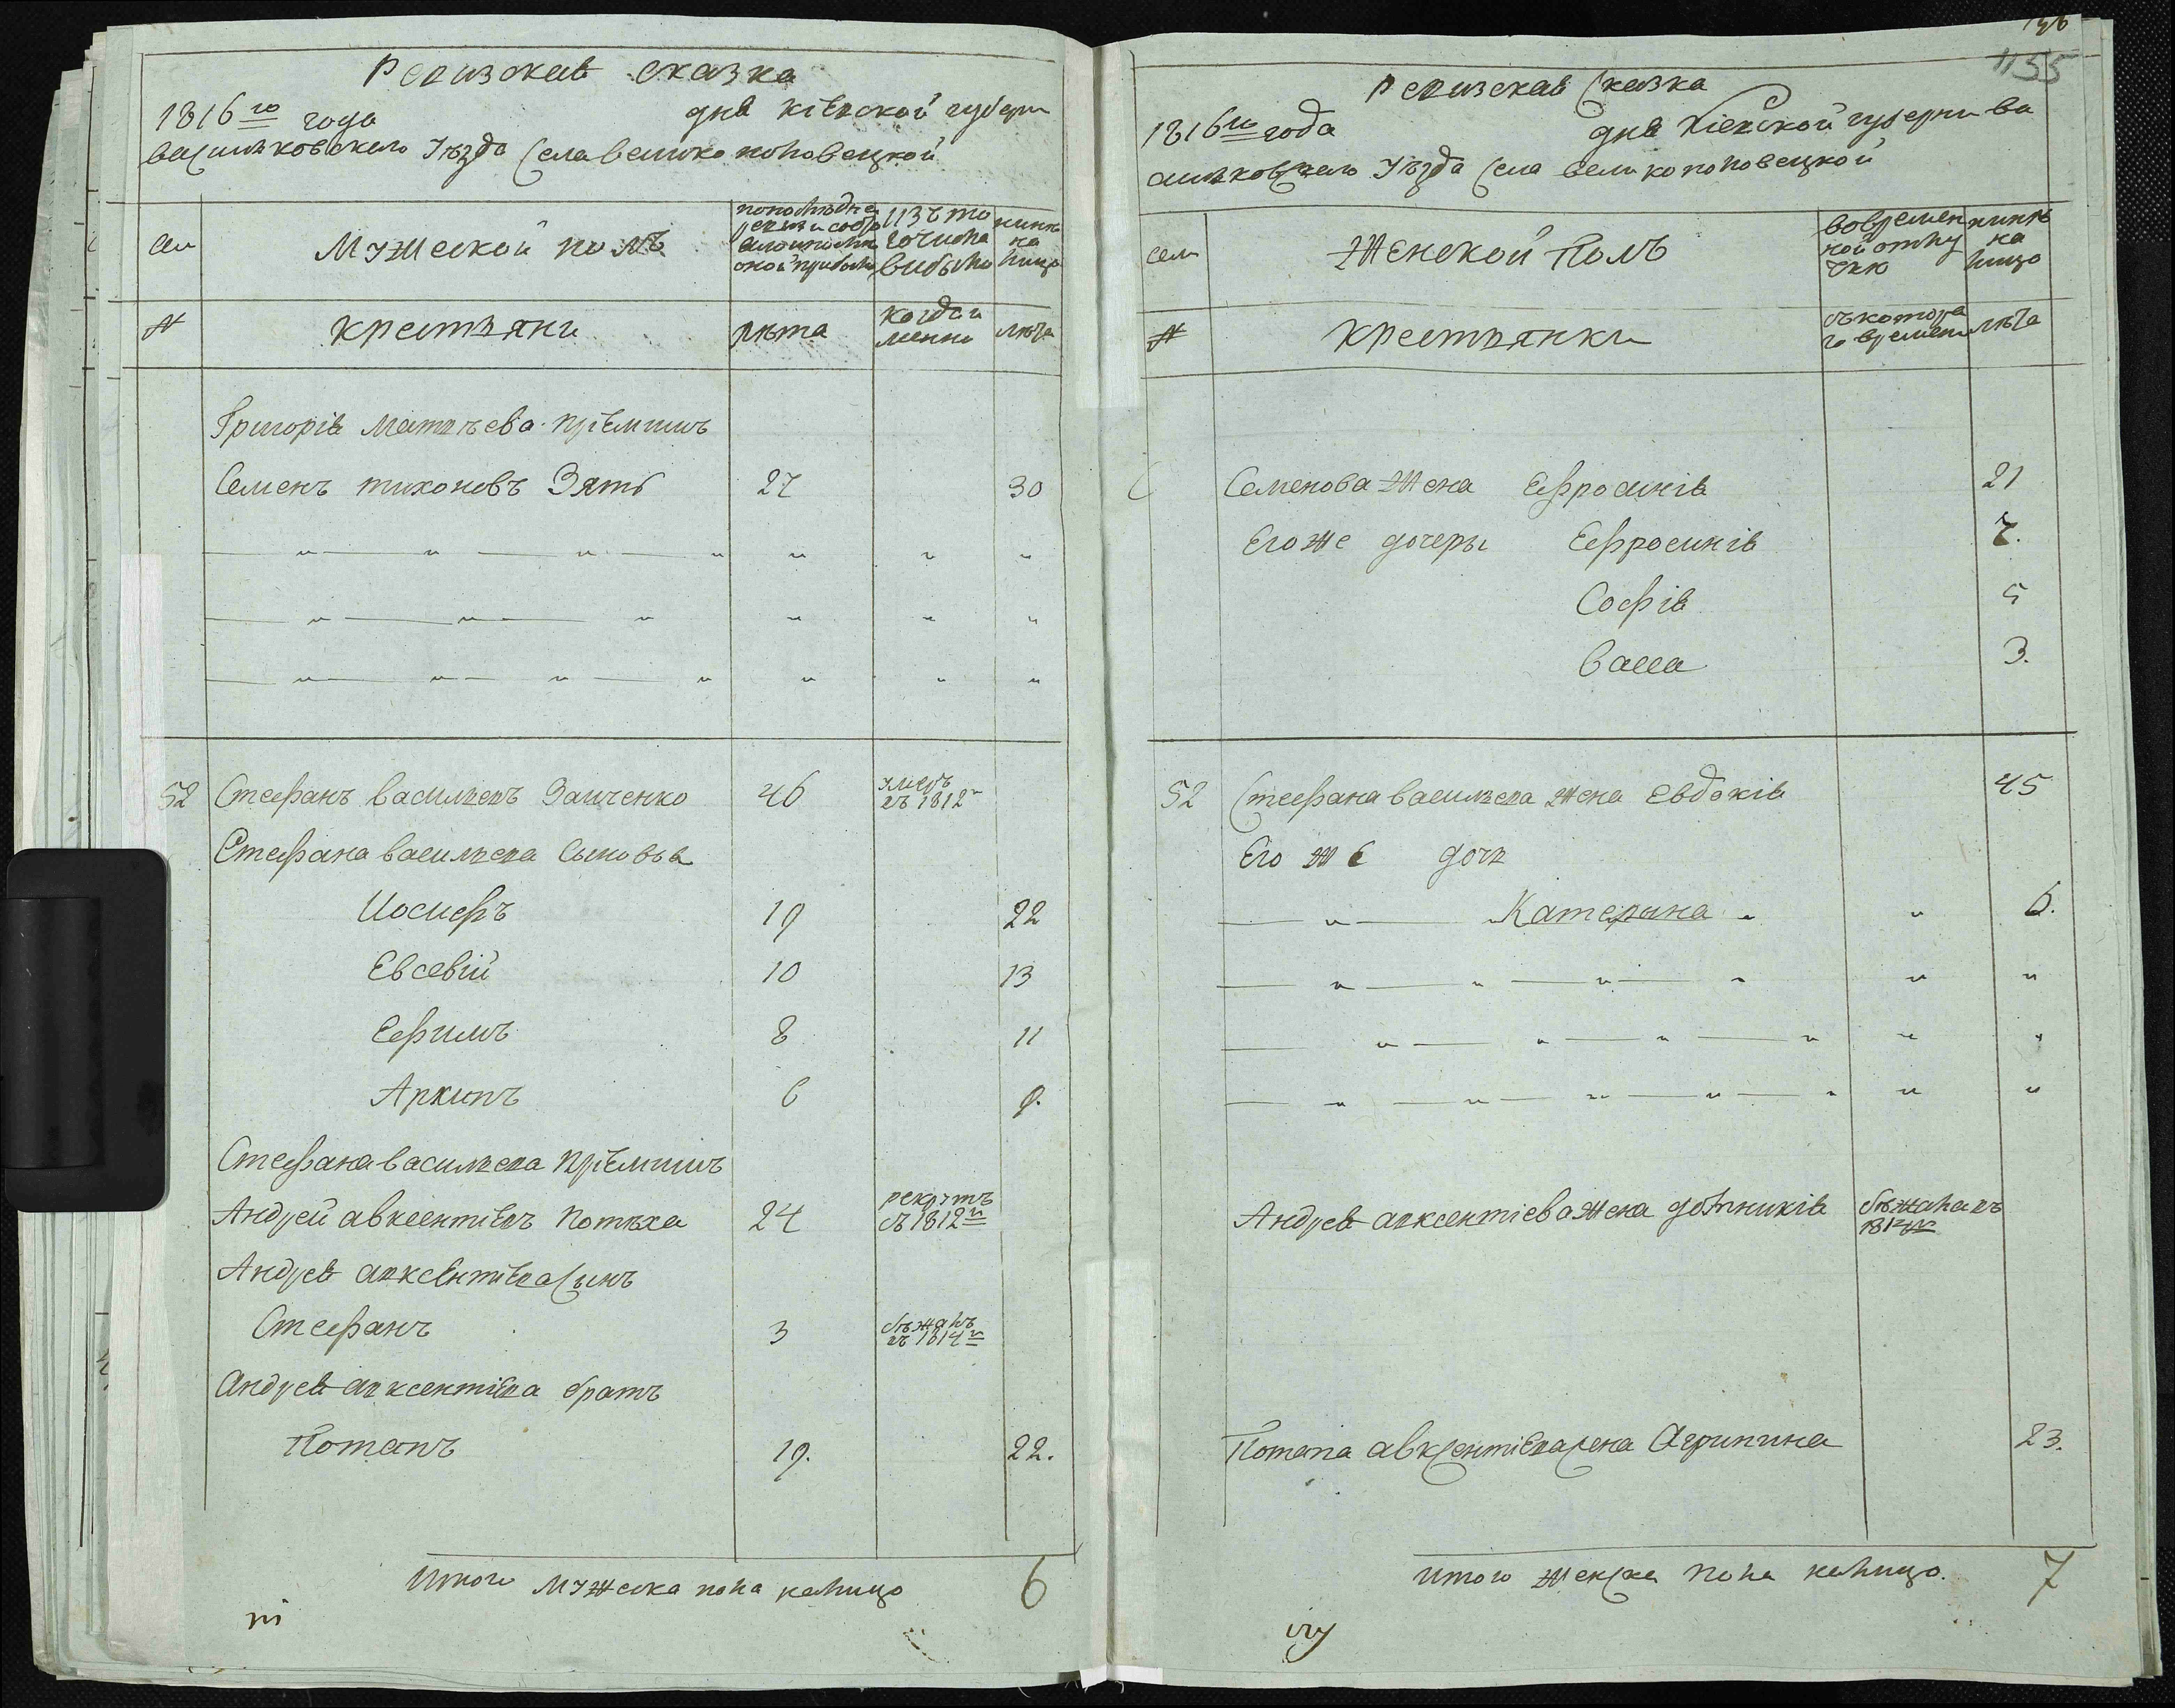 Ревизская сказка
1816го года дня Кіевской губерн
васильковского Уѣзда Села великополовецкой
Сем
Мужеской полъ
по последне ревизи состо яло и после оной прибыло
Изъ то го числа выбыло
нинѣ на лицо
№
крестьяни
лѣта
когда и менно
лѣта
Григорія Матвѣева пріемышъ
Семенъ тихоновъ Зять 27 30
52 Стефанъ васильевъ Заиченко 46 умеръ въ 1812м
Стефана васильева Сыновья
Иосифъ 19 22
Евсевій 10 13
Ефимъ 8 11
Архипъ 6 9.
Стефана васильева пріемышъ
Андрей авксентіевъ Потѣха 24 рекрутъ съ 1812го
Андрея авксентіева Сынъ
Стефанъ 3 бѣжалъ въ 1814м
Андрея авксентіева братъ
Потапъ 19. 22.
Итого мужеска пола налицо 6
1155
Ревизская Сказка
1816го года дня Кіевской губерни ва
сильковского Уѣзда Села великополовецкой
сем
Женской Полъ
во времен ной отлу чке
нинѣ на лицо
№
крестьянки
съ котора го времени
лѣта
Семенова Жена Ефросинія 21
Его же дочеры Ефросинія 7.
Софія 5
васса 3.
52 Стефана васильева жена Евдокія 45
Его же дочь
Катерына 6.
Андрея авксентіева жена бѣжала въ 1814м
Потапа авксентіева жена Агрипина 23.
Итого женска пола налицо. 7